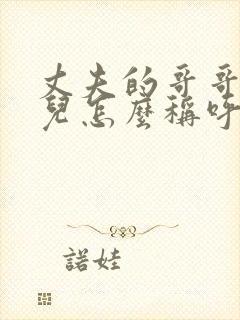 丈夫的哥哥
兒怎麼稱呼
諾娃